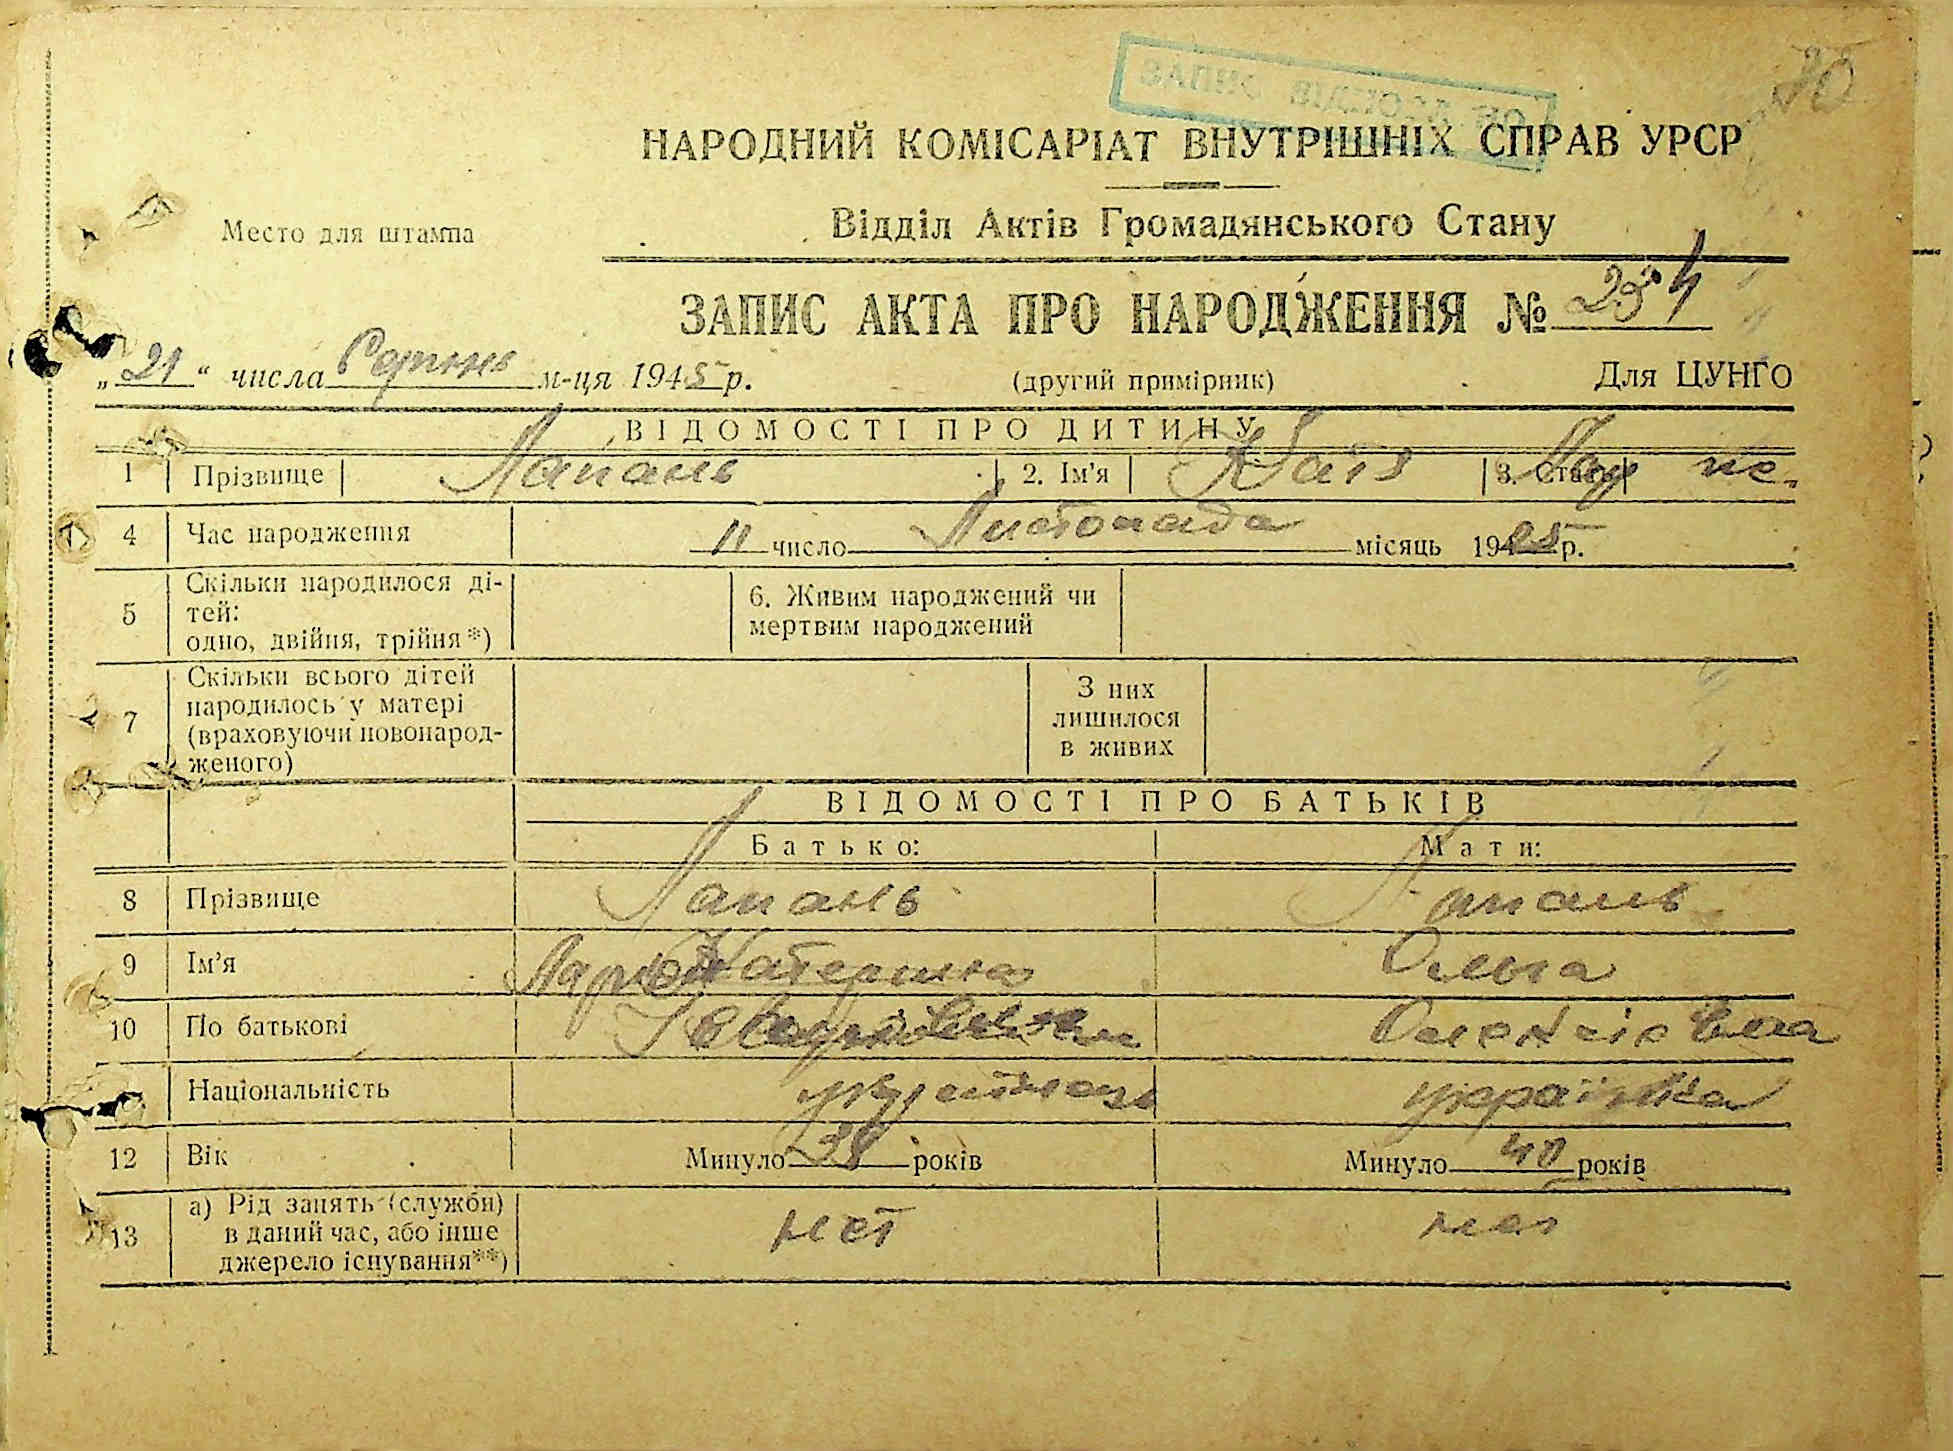 70
ЗАПИС
НАРОДНИЙ КОМІСАРІАТ ВНУТРІШНІХ СПРАВ УРСР
Место для штампа
Відділ Актів Громадянського Стану
ЗАПИС АКТА ПРО НАРОДЖЕННЯ № 234
„21“ числа Серпнь м-ця 1945 р. (другий примірник) Для ЦУНГО
ВІДОМОСТІ ПРО ДИТИНУ
1 Прізвище Лапань 2. Ім'я 3. Стать
4 Час народження 11 число Листопада місяць 1925 р.
5 Скільки народилося ді-
тей:
одно, двійня, трійня*)
6. Живим народжений чи
мертвим народжений
7 Скільки всього дітей
народилось у матері
(враховуючи новонарод-
женого)
З них
лишилося
в живих
ВІДОМОСТІ ПРО БАТЬКІВ
Батько: Мати:
8 Прізвище Лапань Лапань
9 Ім'я Ольга
10 По батькові Олексієвна
Національність українець українка
12 Вік Минуло 38 років Минуло 40 років
13 а) Рід занять (служби)
в даний час, або інше
джерело існування**)
нет нет